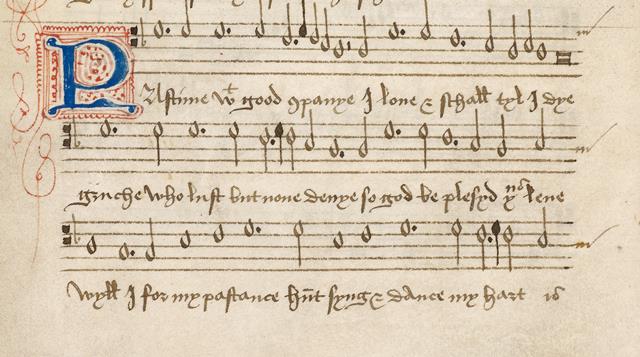 PAstime wt good 9panye I loue & schall tyl I dye
gruche who lust but none denye so god be plesyd yus leue
wyll I for my pastance hut syng & dance my hart is